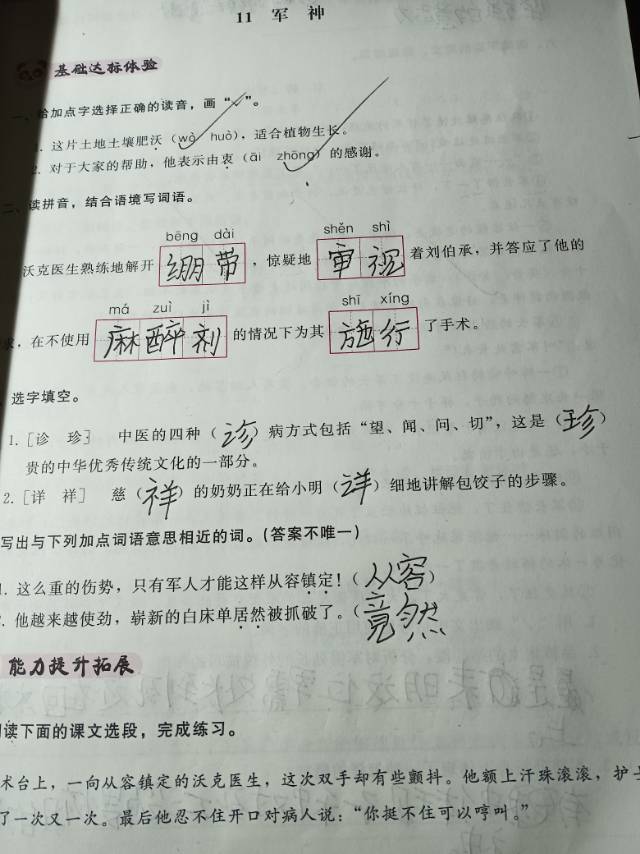 11 军 神
基础达标体验
一、给加点字选择正确的读音，画“✓”。
1. 这片土地土壤肥沃（wò huò），适合植物生长。
2. 对于大家的帮助，他表示由衷（āi zhōng）的感谢。
二、读拼音，结合语境写词语。
bēng dài shěn shì
沃克医生熟练地解开 绷带 ，惊疑地 审视 着刘伯承，并答应了他的
má zuì jì shī xíng
求，在不使用 麻醉剂 的情况下为其 施行 了手术。
选字填空。
1.［诊 珍］ 中医的四种（诊）病方式包括“望、闻、问、切”，这是（珍）
贵的中华优秀传统文化的一部分。
2.［详 祥］ 慈（祥）的奶奶正在给小明（详）细地讲解包饺子的步骤。
写出与下列加点词语意思相近的词。（答案不唯一）
1. 这么重的伤势，只有军人才能这样从容镇定！（从容）
2. 他越来越使劲，崭新的白床单居然被抓破了。（竟然
能力提升拓展
读下面的课文选段，完成练习。
术台上，一向从容镇定的沃克医生，这次双手却有些颤抖。他额上汗珠滚滚，护士
了一次又一次。最后他忍不住开口对病人说：“你挺不住可以哼叫。”